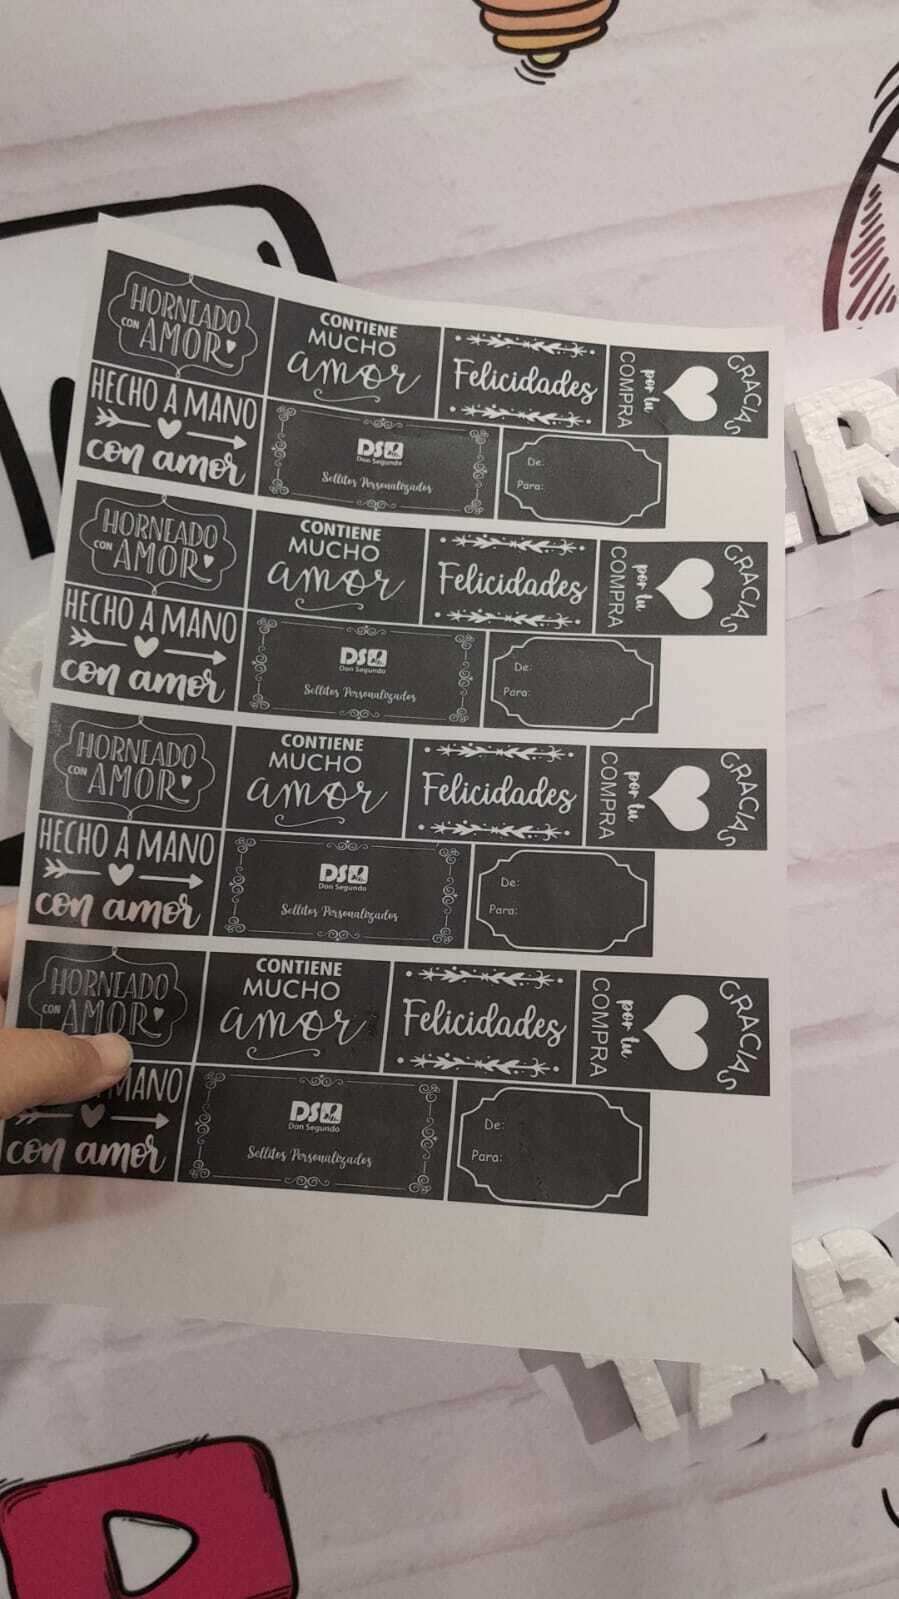 HORNEADO
CON AMOR
CONTIENE
MUCHO
amor
Felicidades
GRACIAS
por tu
COMPRA
HECHO A MANO
con amor
DS
Don Segundo
Sellitos Personalizados
De:
Para:
HORNEADO
CON AMOR
CONTIENE
MUCHO
amor
Felicidades
GRACIAS
por tu
COMPRA
HECHO A MANO
con amor
DS
Don Segundo
Sellitos Personalizados
De:
Para:
HORNEADO
CON AMOR
CONTIENE
MUCHO
amor
Felicidades
GRACIAS
por tu
COMPRA
HECHO A MANO
con amor
DS
Don Segundo
Sellitos Personalizados
De:
Para:
HORNEADO
CON AMOR
CONTIENE
MUCHO
amor
Felicidades
GRACIAS
por tu
COMPRA
A MANO
con amor
DS
Don Segundo
Sellitos Personalizados
De:
Para: